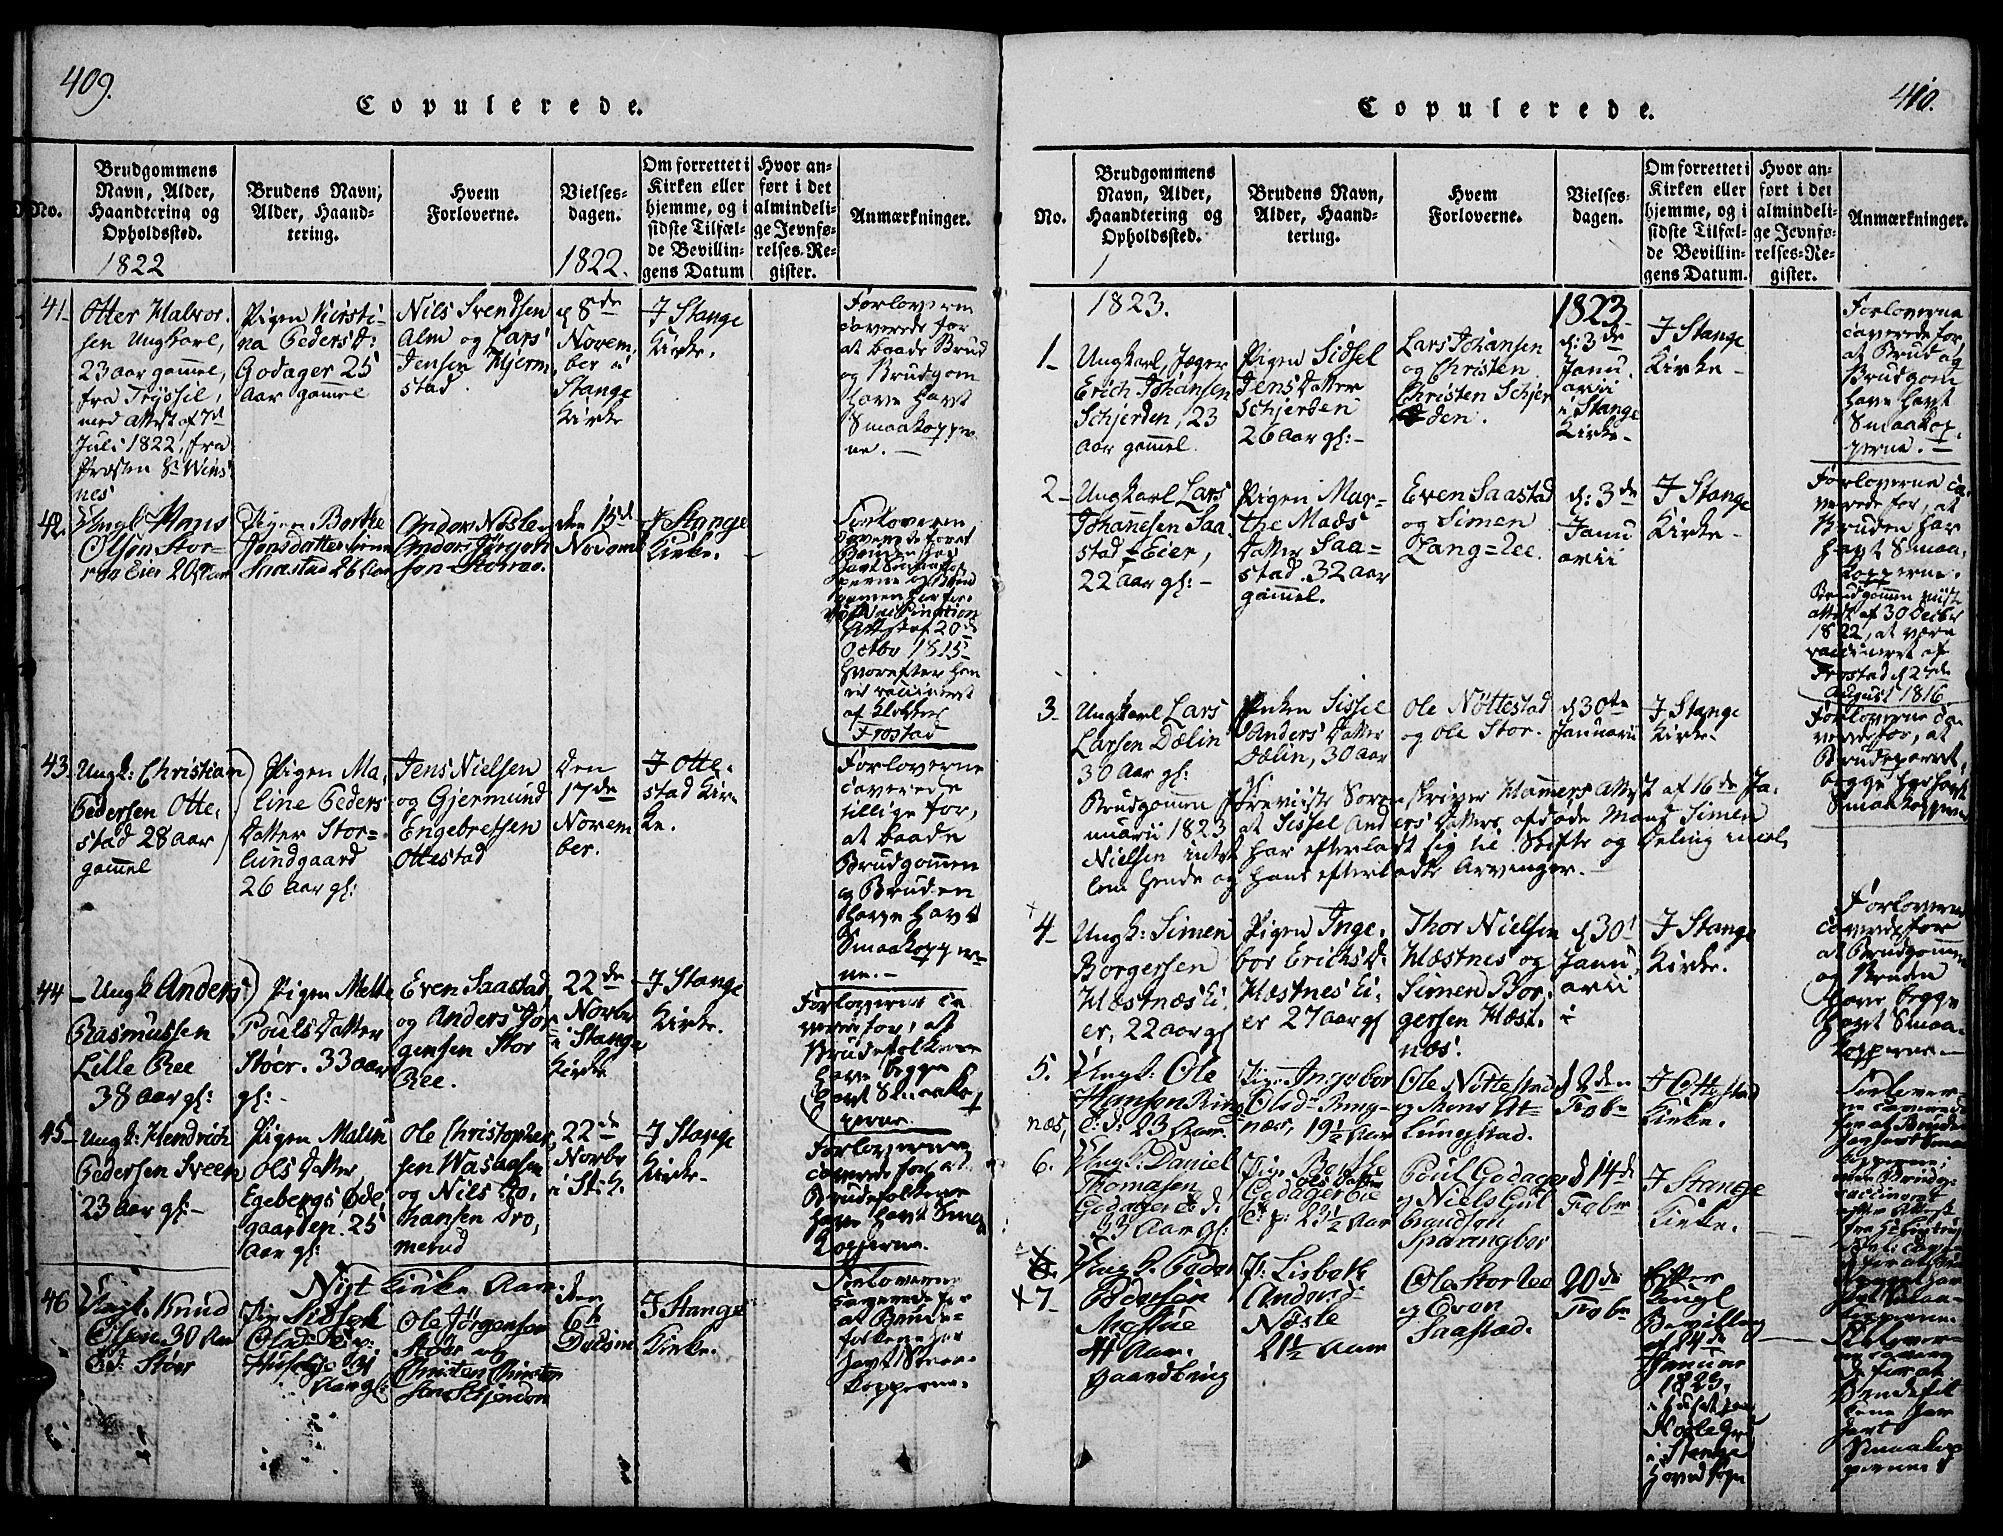 409.
Copulerede.
No.
Brudgommens
Navn, Alder,
Haandtering og
Opholdssted.
1822
Brudens Navn,
Alder, Haand-
tering.
Hvem
Forloverne.
Vielses-
dagen.
1822.
Om forrettet i
Kirken eller
hjemme, og i
sidste Tilfæl-
de Bevillin-
gens Datum
Hvor an-
ført i det
almindeli-
ge Jevnfø-
relses-Re-
gister.
Anmærkninger.
41
Otter Halvor-
sen Ungkarl,
23 aar gammel,
fra Trÿssil,
med Attest af 7d
Juli 1822, fra
Prosten Hr Wins
nes
Pigen Kirsti-
na Peders D:
Godager 25
Aar gammel
Nils Svendsen
Alm og Lars
Jensen Hjerm
stad
d 8de
Novem
ber i
Stange
Kirke
I Stange
Kirke.
Forloverne
caverede for
at baade Brud
og Brudgom
have havt
Smaakopper
ne. -
42.
Ungk: Hans
Olsen Stor-
ree Eier 20 Aar
Pigen Borthe
Jensdatter
Saastad 26 Aar
Anders Nøsle
Anders Jørgen
sen Storree
den 15de
Novembr
I Stange
Kirke.
Forloverne
caverede for at
Bruden har
havt Smaakop
perne og Brud
gommen har for
vist Vaccination
Attest af 20de
Octbr 1815
hvorefter han
er vaccineret
af Klokker
Frostad
43
Ungk: Christian
Pedersen Otte-
stad 28 aar
gammel
Pigen Ma-
line Peders
Datter Stor-
lundgaard
26 Aar gl:
Jens Nielsen
og Gjermund
Engebretsen
Ottestad
Den
17de
Novem
ber.
I Otte-
stad Kir-
ke.
Forloverne
caverede
tillige for,
at baade
Brudgommen
og Bruden
have havt
Smaakopper-
ne. -
44
Ungk Anders
Rasmussen
Lille Ree
38 aar gl:
Pigen Mette
Pouls Datter
Stoer. 33 aar
gl: -
Even Saastad
og Anders Jør
gensen Stor
Ree.
22de
Novbr
i Stange
Kirke
I Stange
Kirke.
Forloverne ca
verede for, at
Brudefolkene
have begge
havt Smaakop
perne.
45
Ungk: Hendrich
Pedersen Sveen
23 aar gl: -
Pigen Malin
Ols Datter
Egebergs Øde-
gaarden. 25
Aar gl:
Ole Christopher
sen Wasaasen
og Nils Jo-
hansen Dro-
merud
22de
Novbr
i St: K.
I Stange
Kirke.
Forloverne
caverede for, at
Brudefolkene
have havt Smaa
kopperne.
Nyt Kirke Aar.
46
Ungk: Knud
Olsen 30 Aar
Støer
Pige Sidsel
Olsd:
31
Aar gl:
Ole Jørgensen
Støer og
Christen Christen
sen Schjerden
den
6te
Decbr
I Stange
Kirke.
Forloverne
caverede for
at Brude-
folkene har
havt Smaa-
kopperne.
410.
Copulerede.
No.
Brudgommens
Navn, Alder,
Haandtering og
Opholdssted.
Brudens Navn,
Alder, Haand-
tering.
Hvem
Forloverne.
Vielses-
dagen.
Om forrettet i
Kirken eller
hjemme, og i
sidste Tilfæl-
de Bevillin-
gens Datum.
Hvor an-
ført i det
almindeli-
ge Jevnfø-
relses-Re-
gister.
Anmærkninger.
1823.
1823
1
Ungkarl, Jæger
Erich Johansen
Schjerden, 23
Aar gammel.
Pigen Sidsel
Jens Datter
Schjerden
26 Aar gl: -
Lars Johansen
og Christen
Christen Schjer
den.
d: 3de
Janu-
arii
i Stange
Kirke.
I Stange
Kirke -
Forloverne
caverede for,
at Brud og
Brudgom
have havt
Smaakop-
perne. -
2
Ungkarl Lars
Johannesen Saa
stad Eier,
22 Aar gl: -
Pigen Mar-
the Mads
Datter Saa-
stad. 32 Aar
gammel.
Even Saastad
og Simen
Lang-Lee.
d: 3de
Janu
arii
I Stange
Kirke -
Forloverne ca-
verede for, at
Bruden har
havt Smaa-
kopperne.
Brudgommen viist
attest af 30 Decbr
1822, at være
vaccineret af
Frostad d 24de
August 1816
3
Ungkarl Lars
Larsen Dælin
30 Aar gl:
Enken Sissel
Anders Datter
Dælin, 30 aar
Ole Nöttestad
og Ole Stor.
d 30te
Januarii
I Stange
Kirke.
Brudgommen foreviiste Sorenskriver Hammers Attest af 16de Ja-
nuarii 1823 at Sissel Anders Datters afdøde Mand Simen
Nielsen intet har efterladt sig til Skifte og Deling mel-
lem hende og hans efterladte Arvinger. -
Forloverne ca-
verede for, at
Brudeparret,
begge har havt
Smaakopperne
4
Ungk: Simen
Borgersen
Hæstnæs Ei-
er, 22 aar gl
Pigen Inge-
bor Erichs D:
Hæstnes Ei-
er 27 aar gl
Thor Nielsen
Hæstnes og
Simen Bor-
gersen Hæst-
næs.
d 30t
Janu
arii
I Stange
Kirke.
Forloverne
caverede for
at Brudgommen
og Bruden
have begge
havt Smaa-
kopperne -
5.
Ungk: Ole
Hansen Ring
næs, 23 Aar.
Pige Ingebor
Olsd: Ring-
næs, 19½ Aar
Ole Nöttestad
og Mons At-
lungstad.
d 2den
Febr
I Ottestad
Kirke.
6.
Ungk: Daniel
Thomasen
Godager
23 Aar gl:
Pige Borthe
Ols Datter
Godager
23½ Aar
Poul Godager
og Niels Gul
brandsen
Sparangber
d 14de
Febr
I Stange
Kirke.
7
Ungk. Peder
Pedersen
41 Aar.
P: Lisbeth
Andersd:
Nøsle
21½ Aar
Ole Stor Lee
og Even
Saastad.
20de
Febr
Efter
Kongl
Bevilling
af 14de
Januar
1823,
i Stange
Hovedsogn
Forlover-
ne caverede
for at Brudefol
kene har
havt
Smaakop
perne